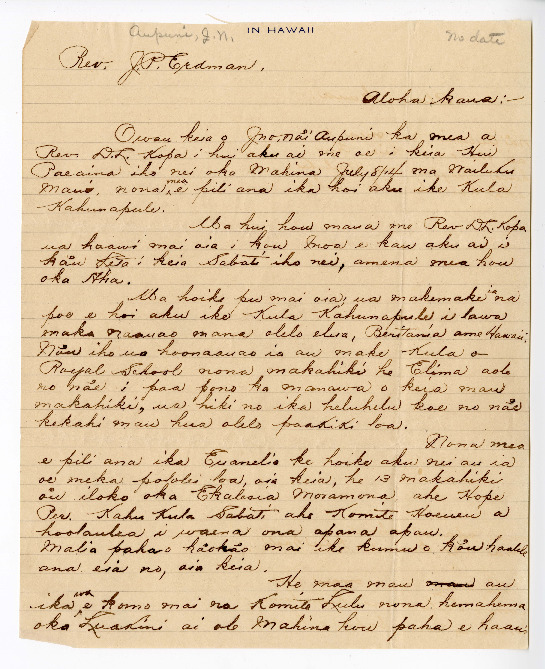 IN HAWAII
Aupuni, J.N.
No date
Rev. J.P. Erdman.
Aloha kaua:-
Owau keia o Jno. Nåi Aupuni ka mea a
Rev. D.K. Kopa i hui aku ai me oe i keia Hui
Paeaina iho nei oka Mahina July 8/14 ma Wailuku
Maui, nona mea e pili ana ika hoi aku ike Kula
Kahunapule.
Ma hui hou maua me Rev D.K. Kopa
ua haawi mai oia i kou Inoa e kau aku ai i
kåu Leta i keia Sabati iho nei, amena mea hou
oka Aha.
Ma hoike pu mai oia, ua makemake ia na
poe e hoi aku ike Kula Kahunapule i lawa
maka naauao mana olelo elua, Beritania ame Hawaii;
Nåu iho ua hoonaauao ia au make Kula o
Royal School nona makahiki he Elima aole
no nåe i paa pono ka manawa o keia mau
makahiki, ua hiki no ika heluhelu koe no nåe
kekahi mau hua olelo paakiki loa.
Nona mea
e pili ana ika Euanelio ke hoike aku nei au ia
oe meka pololei loa, oia keia, he 13 makahiki
øu iloko oka Ekalesia Moramona ahe Hope
Per. Kahu Kula Sabati ahe Komite
hoolaulea i waena ona apana apau.
Malia paha o håohåo mai ike kumu o kåu haalele
ana eia no, oia keia.
He maa mau au
ika wa e komo mai na Komite Lulu nona hemahema
oka Luakini ai ole Mahina hou paha e haawi